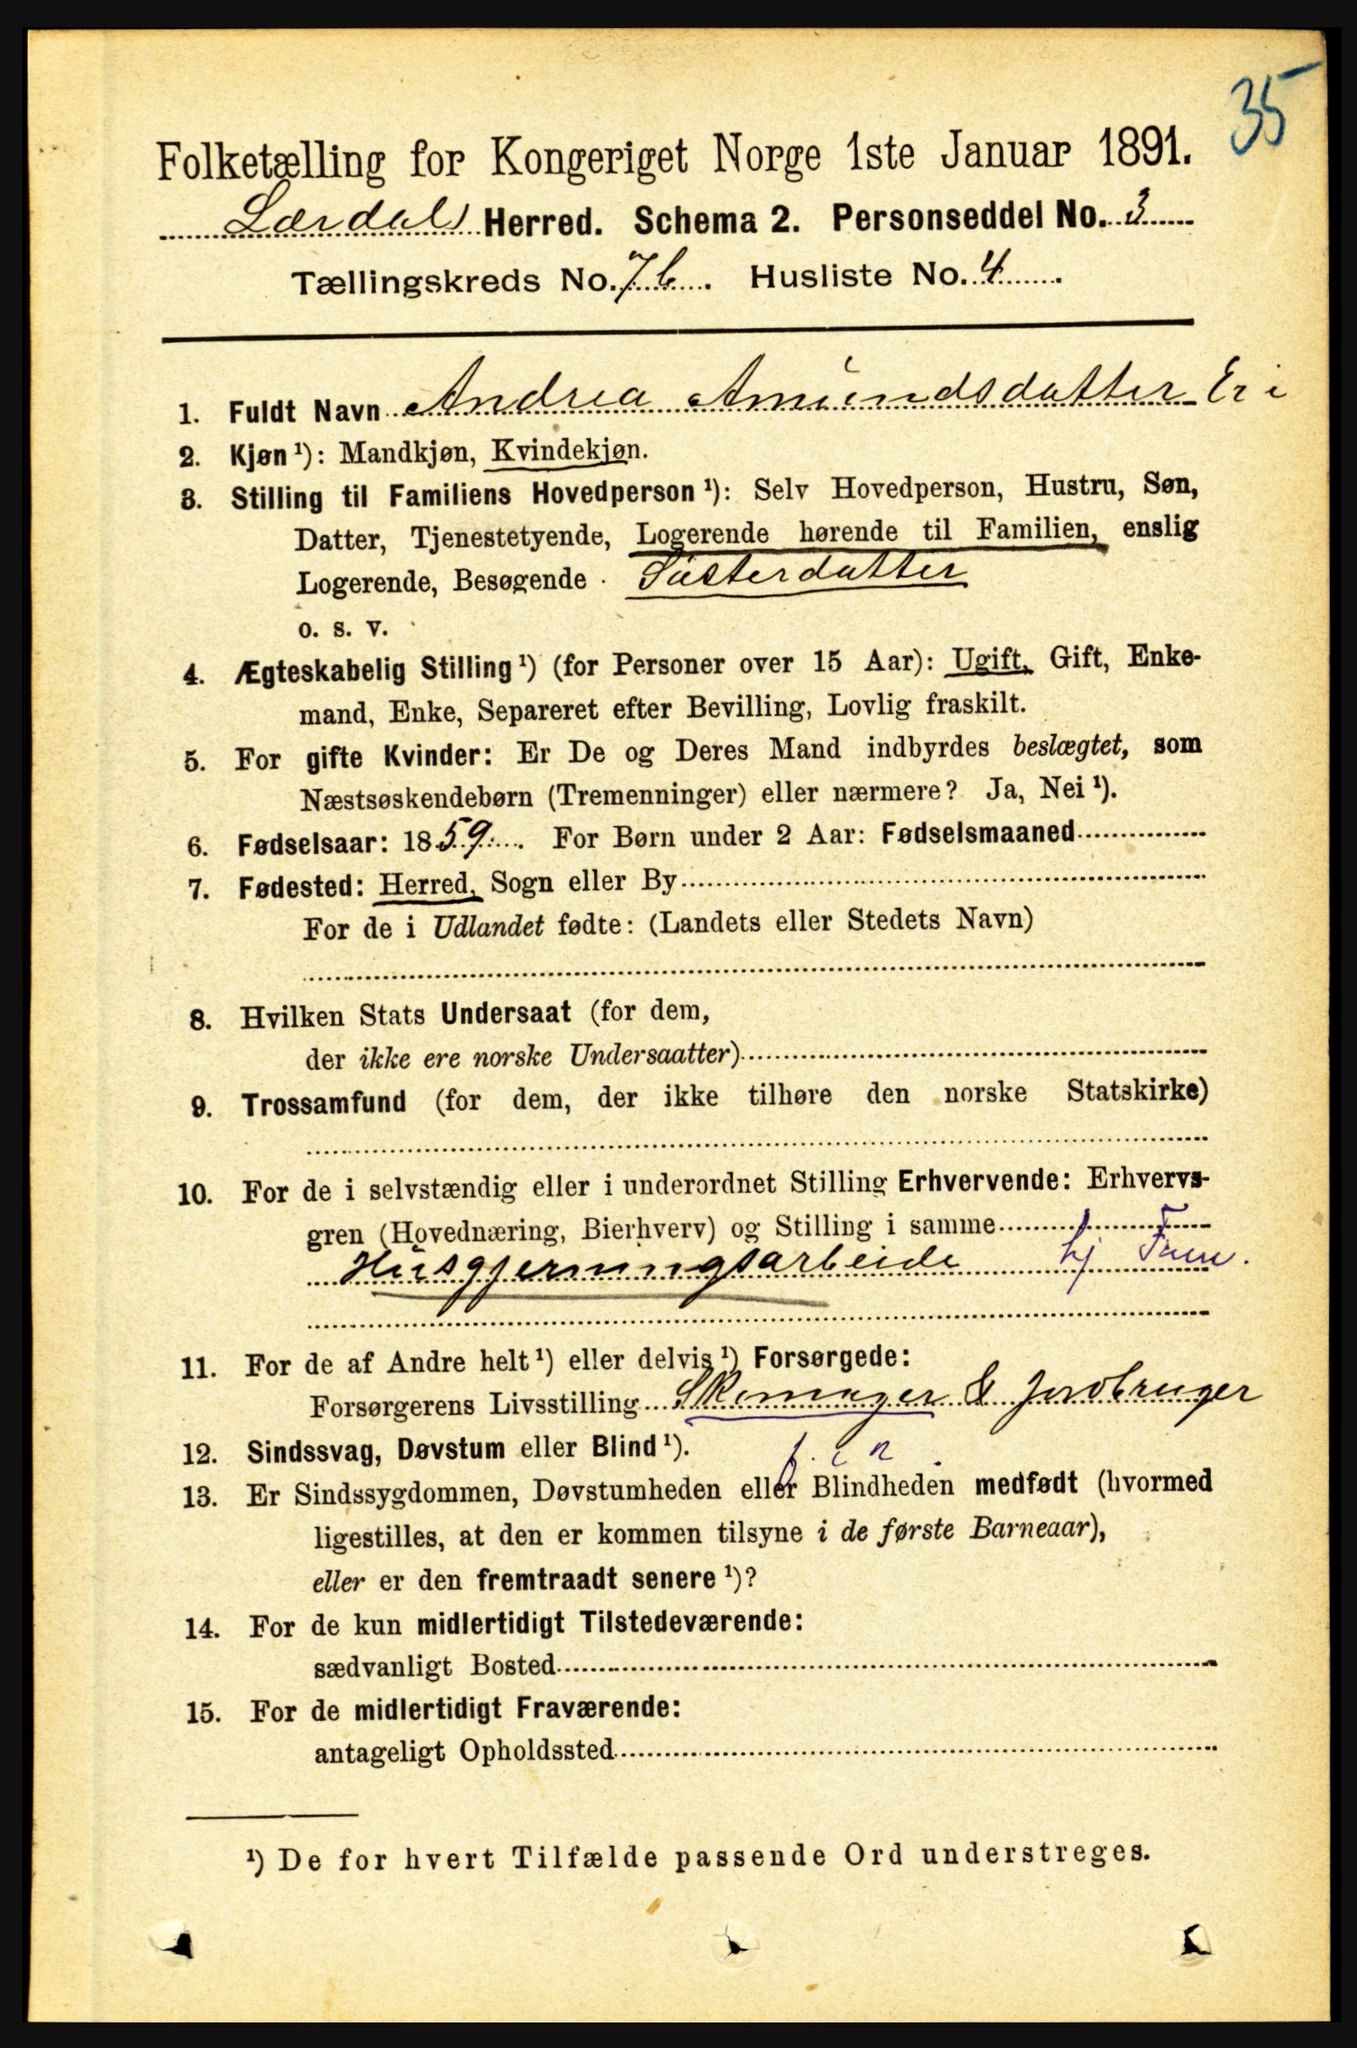 35
Folketælling for Kongeriget Norge 1ste Januar 1891.
Lærdals Herred. Schema 2. Personseddel No. 3
Tællingskreds No. 7b. Husliste No. 4.
1. Fuldt Navn Andrea Amundsdatter Eri
2. Kjøn¹): Mandkjøn, Kvindekjøn.
3. Stilling til Familiens Hovedperson¹): Selv Hovedperson, Hustru, Søn,
Datter, Tjenestetyende, Logerende hørende til Familien, enslig
Logerende, Besøgende Süsterdatter
o. s. v.
4. Ægteskabelig Stilling¹) (for Personer over 15 Aar): Ugift, Gift, Enke-
mand, Enke, Separeret efter Bevilling, Lovlig fraskilt.
5. For gifte Kvinder: Er De og Deres Mand indbyrdes beslægtet, som
Næstsøskendebørn (Tremenninger) eller nærmere? Ja, Nei¹).
6. Fødselsaar: 1859. For Børn under 2 Aar: Fødselsmaaned
7. Fødested: Herred, Sogn eller By
For de i Udlandet fødte: (Landets eller Stedets Navn)
8. Hvilken Stats Undersaat (for dem,
der ikke ere norske Undersaatter)
9. Trossamfund (for dem, der ikke tilhøre den norske Statskirke)
10. For de i selvstændig eller i underordnet Stilling Erhvervende: Erhvervs-
gren (Hovednæring, Bierhverv) og Stilling i samme
Husgjerningsarbeide hj Fam.
11. For de af Andre helt¹) eller delvis¹) Forsørgede:
Forsørgerens Livsstilling Skomager & Jordbruger
12. Sindssvag, Døvstum eller Blind¹).
13. Er Sindssygdommen, Døvstumheden eller Blindheden medfødt (hvormed
ligestilles, at den er kommen tilsyne i de første Barneaar),
eller er den fremtraadt senere¹)?
14. For de kun midlertidigt Tilstedeværende:
sædvanligt Bosted
15. For de midlertidigt Fraværende:
antageligt Opholdssted
¹) De for hvert Tilfælde passende Ord understreges.